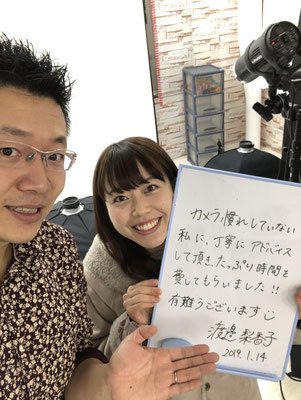 カメラ慣れしていない
私に、丁寧にアドバイス
して頂き、たっぷり時間を
費してもらいました!!
有難うございます
渡邊 梨香子
2019.1.14